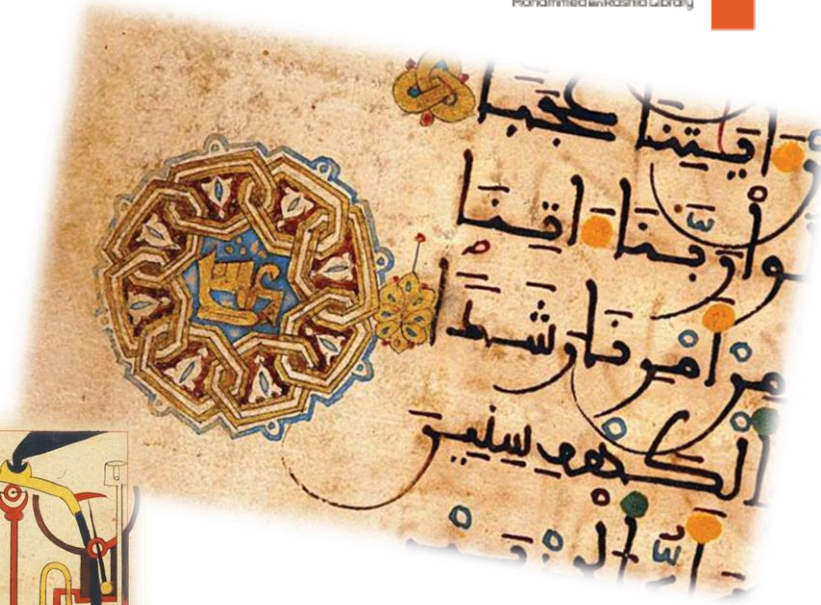 Mohammed Bin Rashid Library
ايتنا عجبا
وا ربّنا اتنا
من امرنا رشدا
الكهف سنين